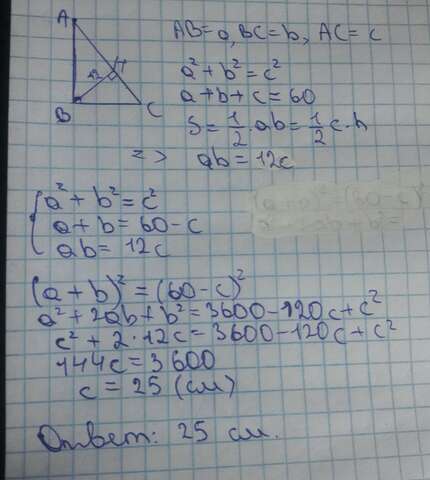 A
12
H
B
C
AB=a, BC=b, AC=c
a²+b²=c²
a+b+c=60
S=1/2·ab=1/2c·h
=> ab=12c
{a²+b²=c²
a+b=60-c
ab=12c
(a+b)²=(60-c)²
a²+2ab+b²=3600-120c+c²
c²+2·12c=3600-120c+c²
144c=3600
c=25 (см)
Ответ: 25 см.